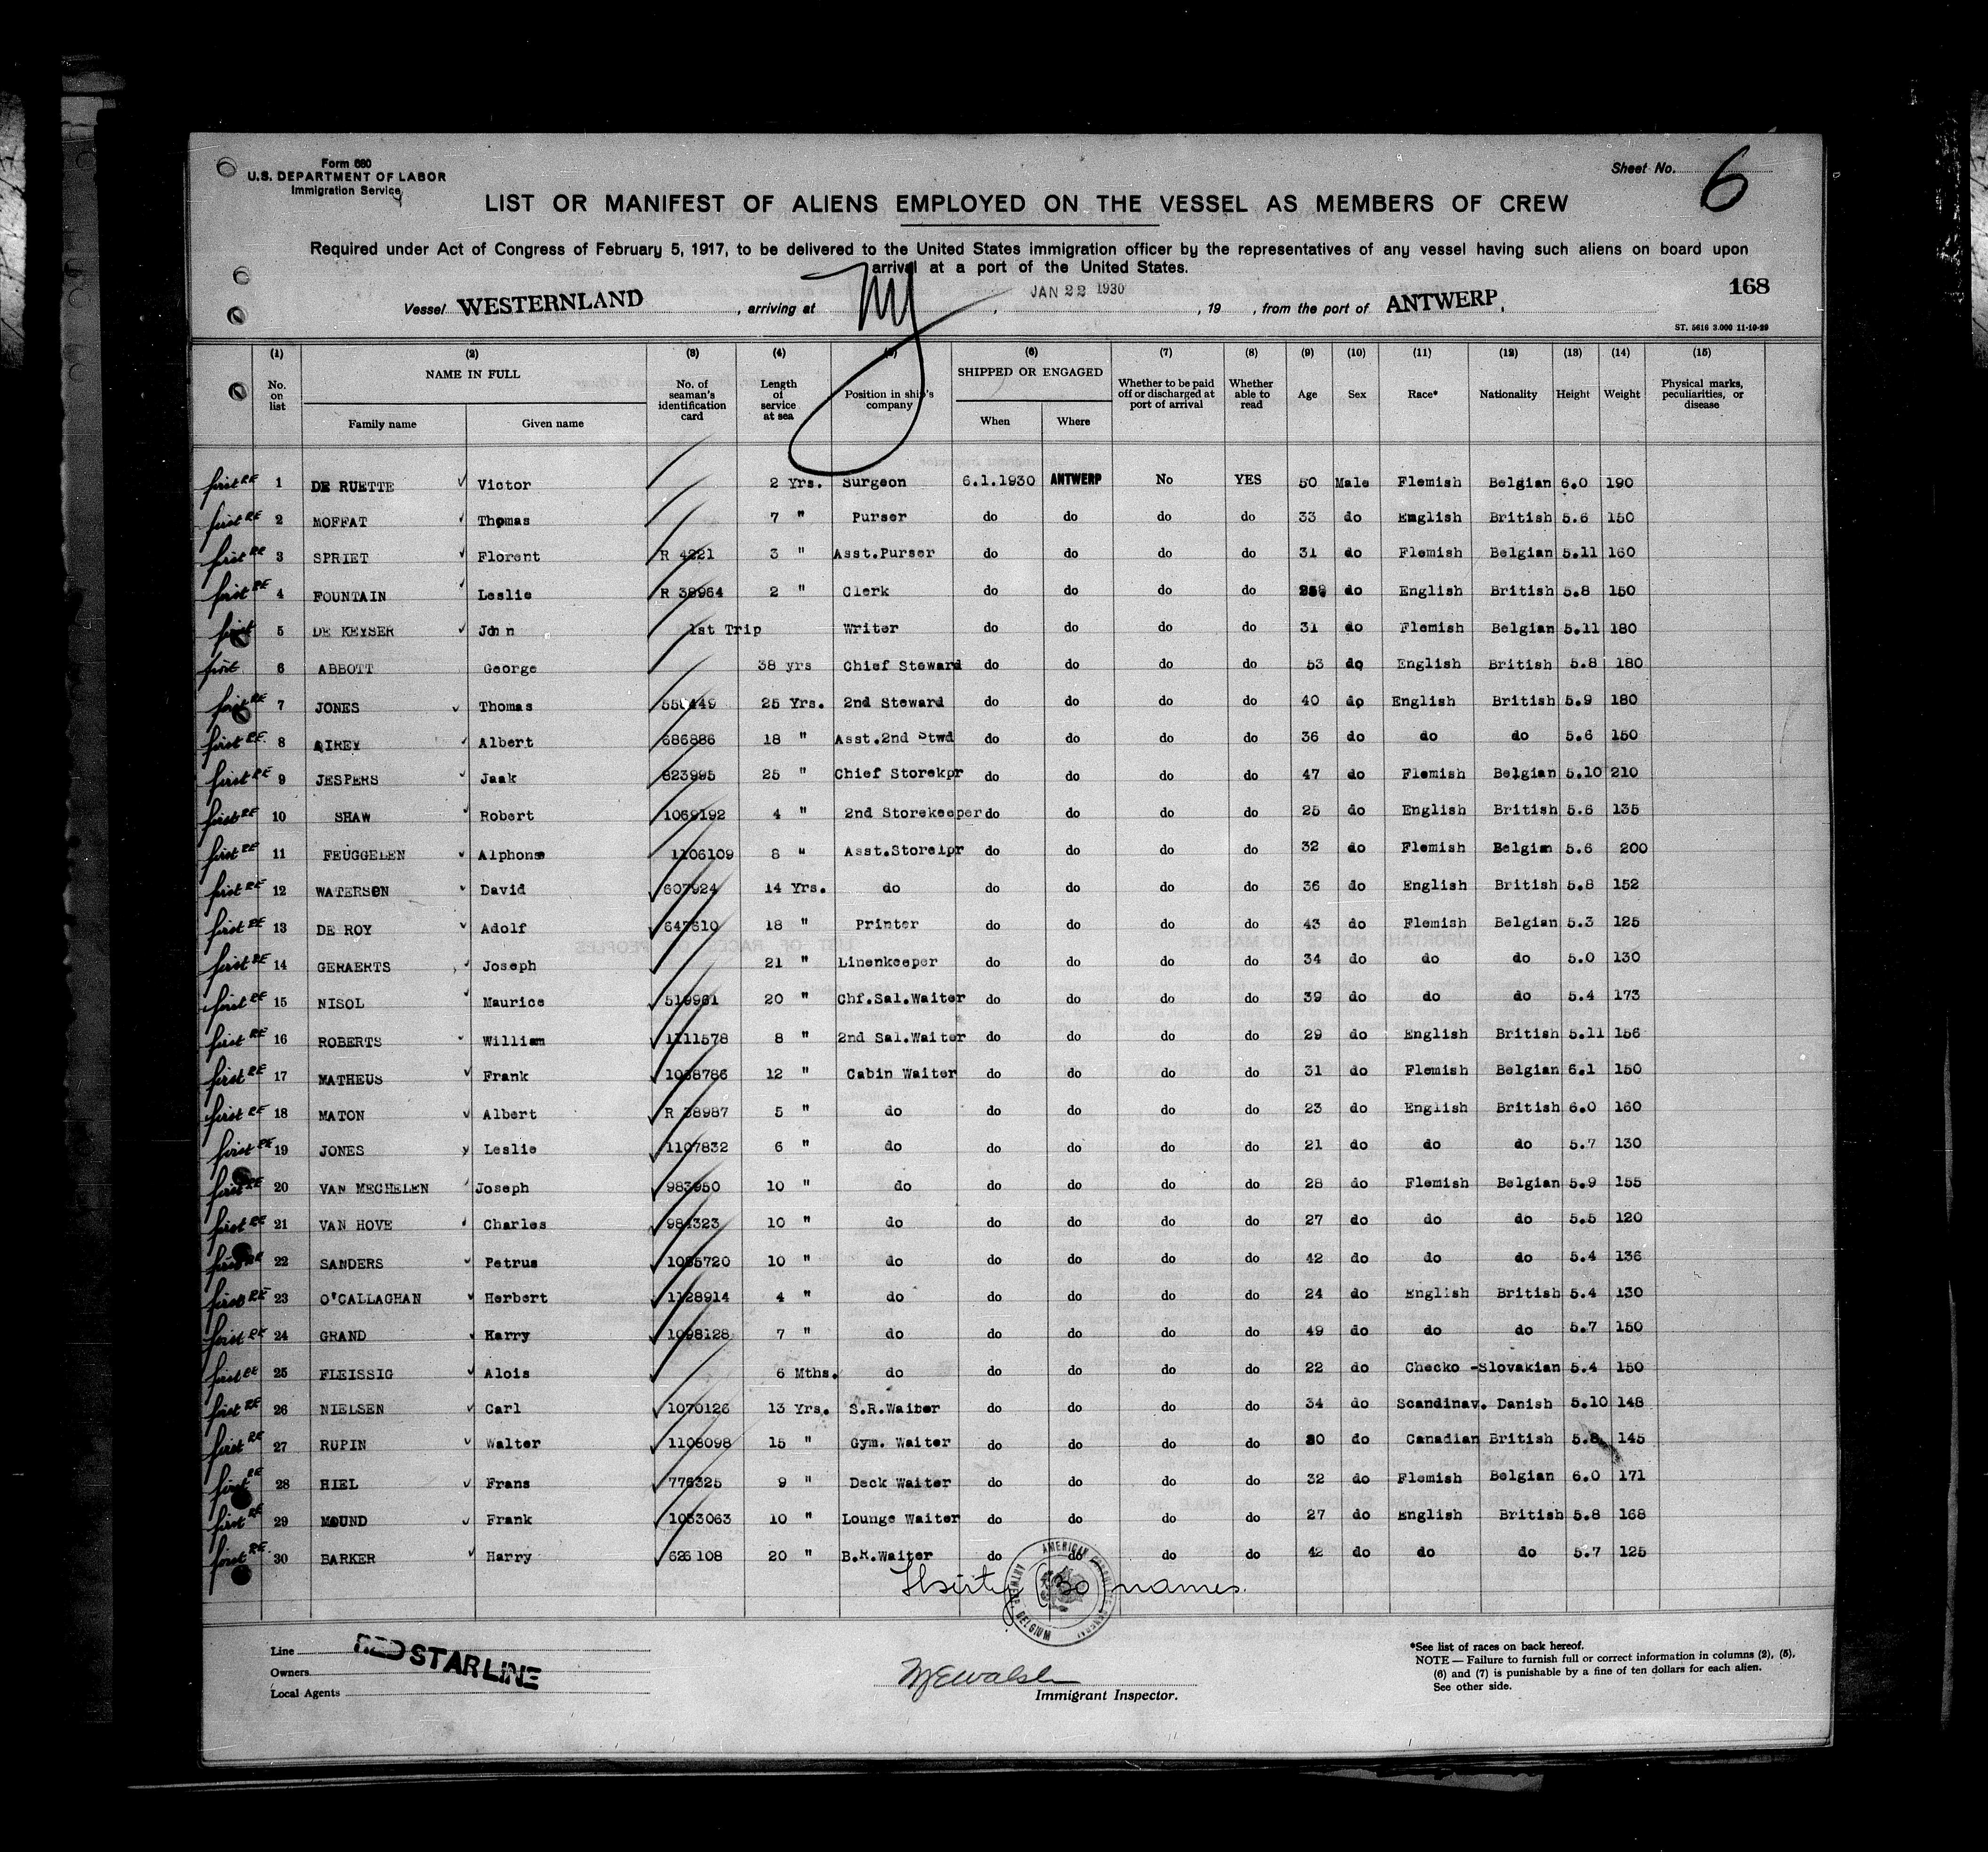 Form 680
U.S. DEPARTMENT OF LABOR
Immigration Service
Sheet No. 6
LIST OR MANIFEST OF ALIENS EMPLOYED ON THE VESSEL AS MEMBERS OF CREW
Required under Act of Congress of February 5, 1917, to be delivered to the United States immigration officer by the representatives of any vessel having such aliens on board upon
arrival at a port of the United States.
168
Vessel WESTERNLAND, arriving at NY, JAN 22 1930, 19 , from the port of ANTWERP.
ST. 5616 3.000 11-10-29
(1) (2) (3) (4) (5) (6) (7) (8) (9) (10) (11) (12) (13) (14) (15)
No. on list NAME IN FULL Family name Given name No. of seaman's identification card Length of service at sea Position in ship's company SHIPPED OR ENGAGED When Where Whether to be paid off or discharged at port of arrival Whether able to read Age Sex Race* Nationality Height Weight Physical marks, peculiarities, or disease
first RE 1 DE RUETTE Victor 2 Yrs. Surgeon 6.1.1930 ANTWERP No YES 50 Male Flemish Belgian 6.0 190
first RE 2 MOFFAT Thomas 7 " Purser do do do do 33 do English British 5.6 150
first RE 3 SPRIET Florent R 4221 3 " Asst.Purser do do do do 31 do Flemish Belgian 5.11 160
first RE 4 FOUNTAIN Leslie R 38964 2 " Clerk do do do do do English British 5.8 150
first 5 DE KEYSER John 1st Trip Writer do do do do 31 do Flemish Belgian 5.11 180
first 6 ABBOTT George 38 yrs Chief Steward do do do do 53 do English British 5.8 180
first RE 7 JONES Thomas 550449 25 Yrs. 2nd Steward do do do do 40 do English British 5.9 180
first RE 8 AIREY Albert 686886 18 " Asst.2nd Stwd do do do do 36 do do do 5.6 150
first RE 9 JESPERS Jaak 823995 25 " Chief Storekpr do do do do 47 do Flemish Belgian 5.10 210
first RE 10 SHAW Robert 1069192 4 " 2nd Storekeeper do do do do 25 do English British 5.6 135
first RE 11 FEUGGELEN Alphonse 1106109 8 " Asst.Storekpr do do do do 32 do Flemish Belgian 5.6 200
first RE 12 WATERSON David 607924 14 Yrs. do do do do do 36 do English British 5.8 152
first RE 13 DE ROY Adolf 647610 18 " Printer do do do do 43 do Flemish Belgian 5.3 125
first RE 14 GERAERTS Joseph 21 " Linenkeeper do do do do 34 do do do 5.0 130
first RE 15 NISOL Maurice 519961 20 " Chf.Sal.Waiter do do do do 39 do do do 5.4 173
first RE 16 ROBERTS William 1111578 8 " 2nd Sal.Waiter do do do do 29 do English British 5.11 156
first RE 17 MATHEUS Frank 1038786 12 " Cabin Waiter do do do do 31 do Flemish Belgian 6.1 150
first RE 18 MATON Albert R 38987 5 " do do do do do 23 do English British 6.0 160
first RE 19 JONES Leslie 1107832 6 " do do do do do 21 do do do 5.7 130
first RE 20 VAN MECHELEN Joseph 983950 10 " do do do do do 28 do Flemish Belgian 5.9 155
first RE 21 VAN HOVE Charles 984323 10 " do do do do do 27 do do do 5.5 120
first RE 22 SANDERS Petrus 1035720 10 " do do do do do 42 do do do 5.4 136
first RE 23 O'CALLAGHAN Herbert 1128914 4 " do do do do do 24 do English British 5.4 130
first RE 24 GRAND Harry 1098128 7 " do do do do do 49 do do do 5.7 150
first RE 25 FLEISSIG Alois 6 Mths. do do do do do 22 do Checko-Slovakian 5.4 150
first RE 26 NIELSEN Carl 1070126 13 Yrs. S.R.Waiter do do do do 34 do Scandinav. Danish 5.10 148
first RE 27 RUPIN Walter 1108098 15 " Gym. Waiter do do do do 30 do Canadian British 5.8 145
first RE 28 HIEL Frans 776325 9 " Deck Waiter do do do do 32 do Flemish Belgian 6.0 171
first RE 29 MOUND Frank 1053063 10 " Lounge Waiter do do do do 27 do English British 5.8 168
first RE 30 BARKER Harry 626108 20 " B.R.Waiter do do do do 42 do do do 5.7 125
Thirty (30) names.
AMERICAN CONSULATE GENERAL ANTWERP BELGIUM
Line RED STAR LINE
Owners
Local Agents
Immigrant Inspector.
*See list of races on back hereof.
NOTE — Failure to furnish full or correct information in columns (2), (5),
(6) and (7) is punishable by a fine of ten dollars for each alien.
See other side.